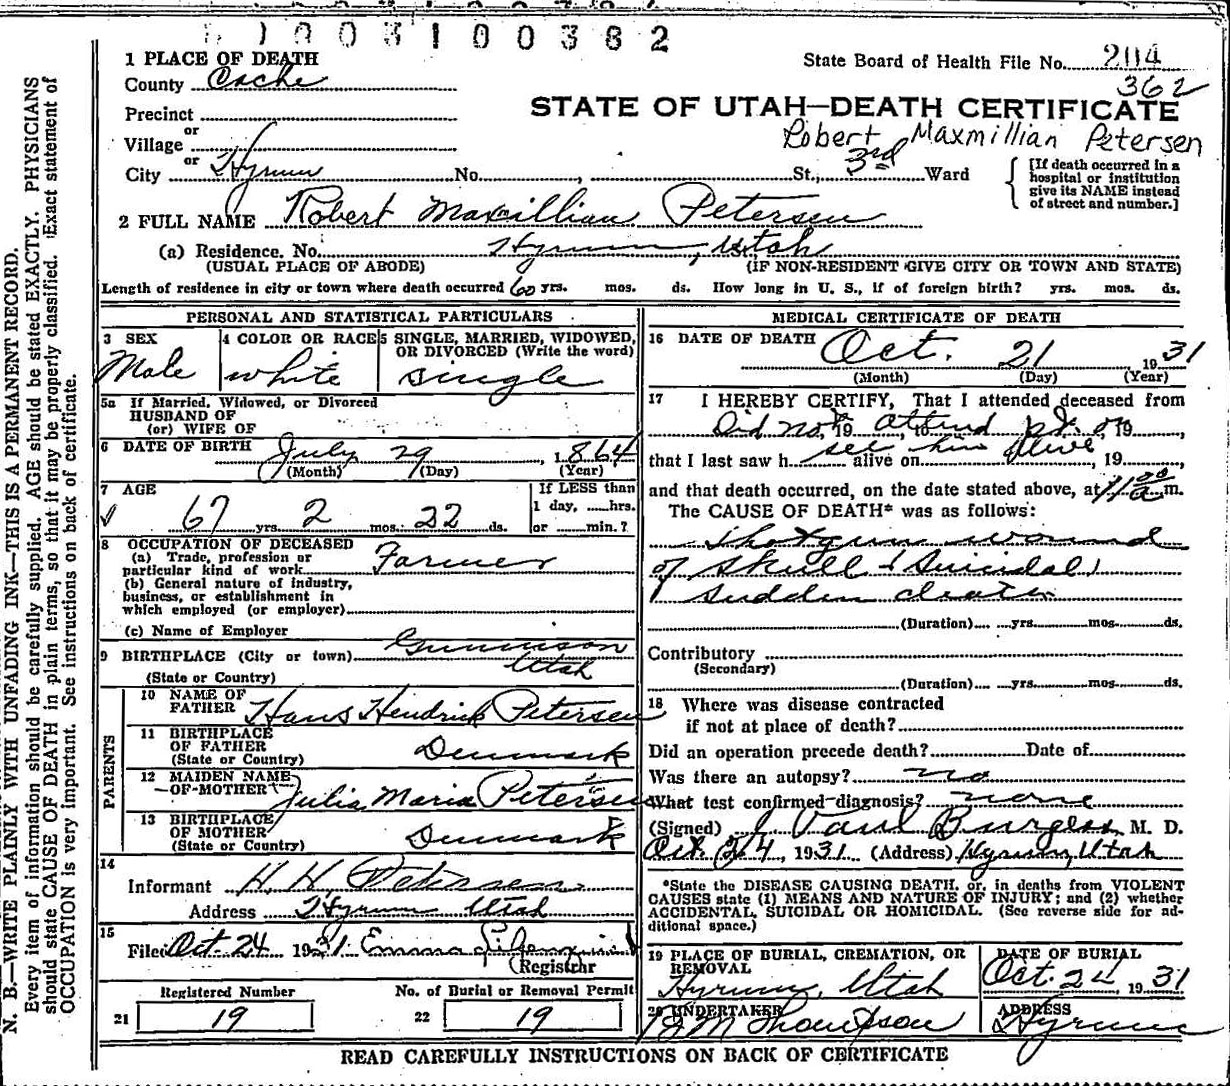 1003100382
1 PLACE OF DEATH
State Board of Health File No. 204
County Cache
362
Precinct
STATE OF UTAH—DEATH CERTIFICATE
or
Village
Robert Maxmillian Petersen
or
City Hyrum No. , St., 3rd Ward
[If death occurred in a hospital or institution give its NAME instead of street and number.]
2 FULL NAME Robert Maxillian Petersen
(a) Residence. No. Hyrum, Utah
(USUAL PLACE OF ABODE) (IF NON-RESIDENT GIVE CITY OR TOWN AND STATE)
Length of residence in city or town where death occurred 60 yrs. mos. ds. How long in U. S., if of foreign birth? yrs. mos. ds.
PERSONAL AND STATISTICAL PARTICULARS
3 SEX
Male
4 COLOR OR RACE
white
5 SINGLE, MARRIED, WIDOWED,
OR DIVORCED (Write the word)
single
5a If Married, Widowed, or Divorced
HUSBAND OF
(or) WIFE OF
6 DATE OF BIRTH July 29, 1864
(Month) (Day) (Year)
7 AGE
67 yrs. 2 mos. 22 ds.
If LESS than
1 day, ......hrs.
or ......min.?
8 OCCUPATION OF DECEASED
(a) Trade, profession or
particular kind of work Farmer
(b) General nature of industry,
business, or establishment in
which employed (or employer)
(c) Name of Employer
9 BIRTHPLACE (City or town) Gunnison
Utah
(State or Country)
PARENTS
10 NAME OF
FATHER Hans Hendrick Petersen
11 BIRTHPLACE
OF FATHER Denmark
(State or Country)
12 MAIDEN NAME
OF MOTHER Julia Maria Petersen
13 BIRTHPLACE
OF MOTHER Denmark
(State or Country)
14
Informant H. H. Petersen
Address Hyrum Utah
15
Filed Oct 24 1931 Emma
Registrar
Registered Number
21 19
No. of Burial or Removal Permit
22 19
MEDICAL CERTIFICATE OF DEATH
16 DATE OF DEATH Oct. 21 1931
(Month) (Day) (Year)
17 I HEREBY CERTIFY, That I attended deceased from
Did not, 19 attend, to pt. or 19
that I last saw h see him alive alive on , 19
and that death occurred, on the date stated above, at 11 a m.
The CAUSE OF DEATH* was as follows:
Shotgun wound
of skull (Suicidal)
sudden death
(Duration) yrs. mos. ds.
Contributory
(Secondary)
(Duration) yrs. mos. ds.
18 Where was disease contracted
if not at place of death?
Did an operation precede death? Date of
Was there an autopsy? no
What test confirmed diagnosis? none
(Signed) J Paul Burgess M. D.
Oct. 24, 1931 (Address) Hyrum, Utah
*State the DISEASE CAUSING DEATH, or, in deaths from VIOLENT
CAUSES state (1) MEANS AND NATURE OF INJURY; and (2) whether
ACCIDENTAL, SUICIDAL OR HOMICIDAL. (See reverse side for ad-
ditional space.)
19 PLACE OF BURIAL, CREMATION, OR
REMOVAL
Hyrum, Utah
DATE OF BURIAL
Oct. 24 1931
20 UNDERTAKER
Thompson
ADDRESS
Hyrum
READ CAREFULLY INSTRUCTIONS ON BACK OF CERTIFICATE
N. B.—WRITE PLAINLY WITH UNFADING INK—THIS IS A PERMANENT RECORD.
Every item of information should be carefully supplied. AGE should be stated EXACTLY. PHYSICIANS
should state CAUSE OF DEATH in plain terms, so that it may be properly classified. Exact statement of
OCCUPATION is very important. See instructions on back of certificate.